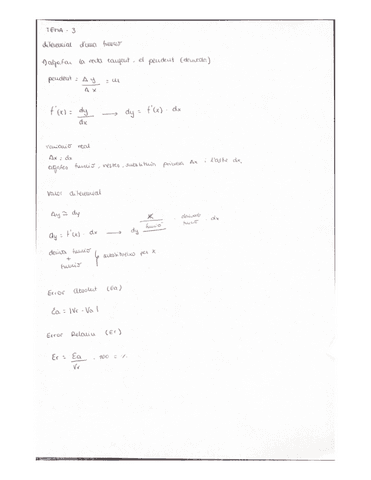 TEMA - 3
diferencial d'una funció
la recta tangent, el pendent (derivada)
pendent = Δy / Δx = m
f'(x) = dy / dx → dy = f'(x) · dx
increment real
Δx = dx
funció, restes, substituim primera Δx i l'altre dx
Valor diferencial
Δy ≅ dy
dy = f'(x) · dx → dy funció · derivada funció dx
derivada funció
+
funció
substituim per x
Error absolut (Ea)
Ea = |Vr - Va|
Error Relatiu (Er)
Er = Ea / Vr · 100 = %